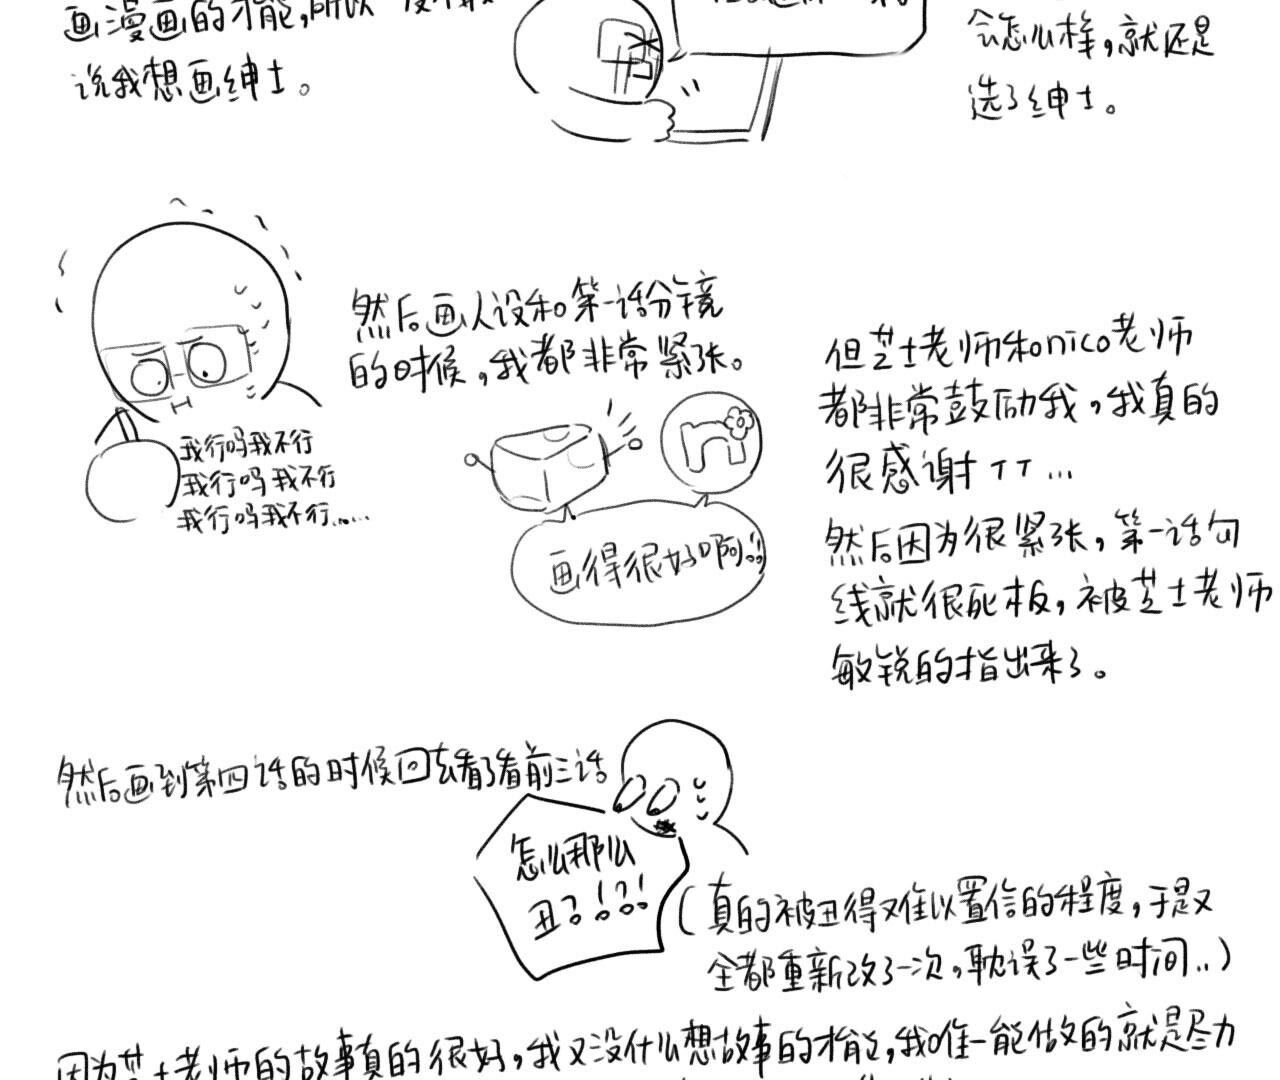 画漫画的才能,所以
说我想画绅士。
会怎么样,就还是
选了绅士。
然后画人设和第一话分镜
的时候,我都非常紧张。
我行吗我不行
我行吗我不行
我行吗我不行......
n
画得很好啊!!
但芝士老师和nico老师
都非常鼓励我,我真的
很感谢TT...
然后因为很紧张,第一话勾
线就很死板,被芝士老师
敏锐的指出来了。
然后画到第四话的时候回去看了看前三话
怎么那么
丑?!?!
(真的被丑得难以置信的程度,于是又
全都重新改了一次,耽误了一些时间..)
因为芝士老师的故事真的很好,我又没什么想故事的才能,我唯一能做的就是尽力